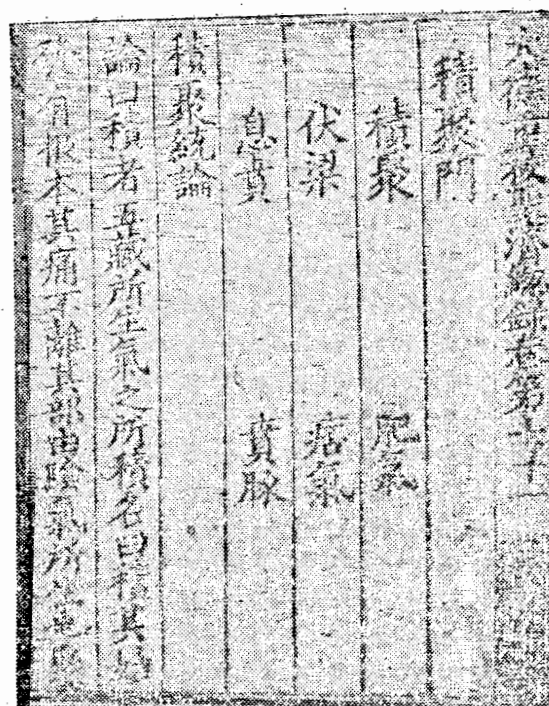 大德重校聖濟總錄卷第七十一
積聚門
積聚 肥氣
伏梁 痞氣
息賁 賁豚
積聚統論
論曰積者五藏所生氣之所積名曰積其始
發有根本其痛不離其部由陰氣所生也